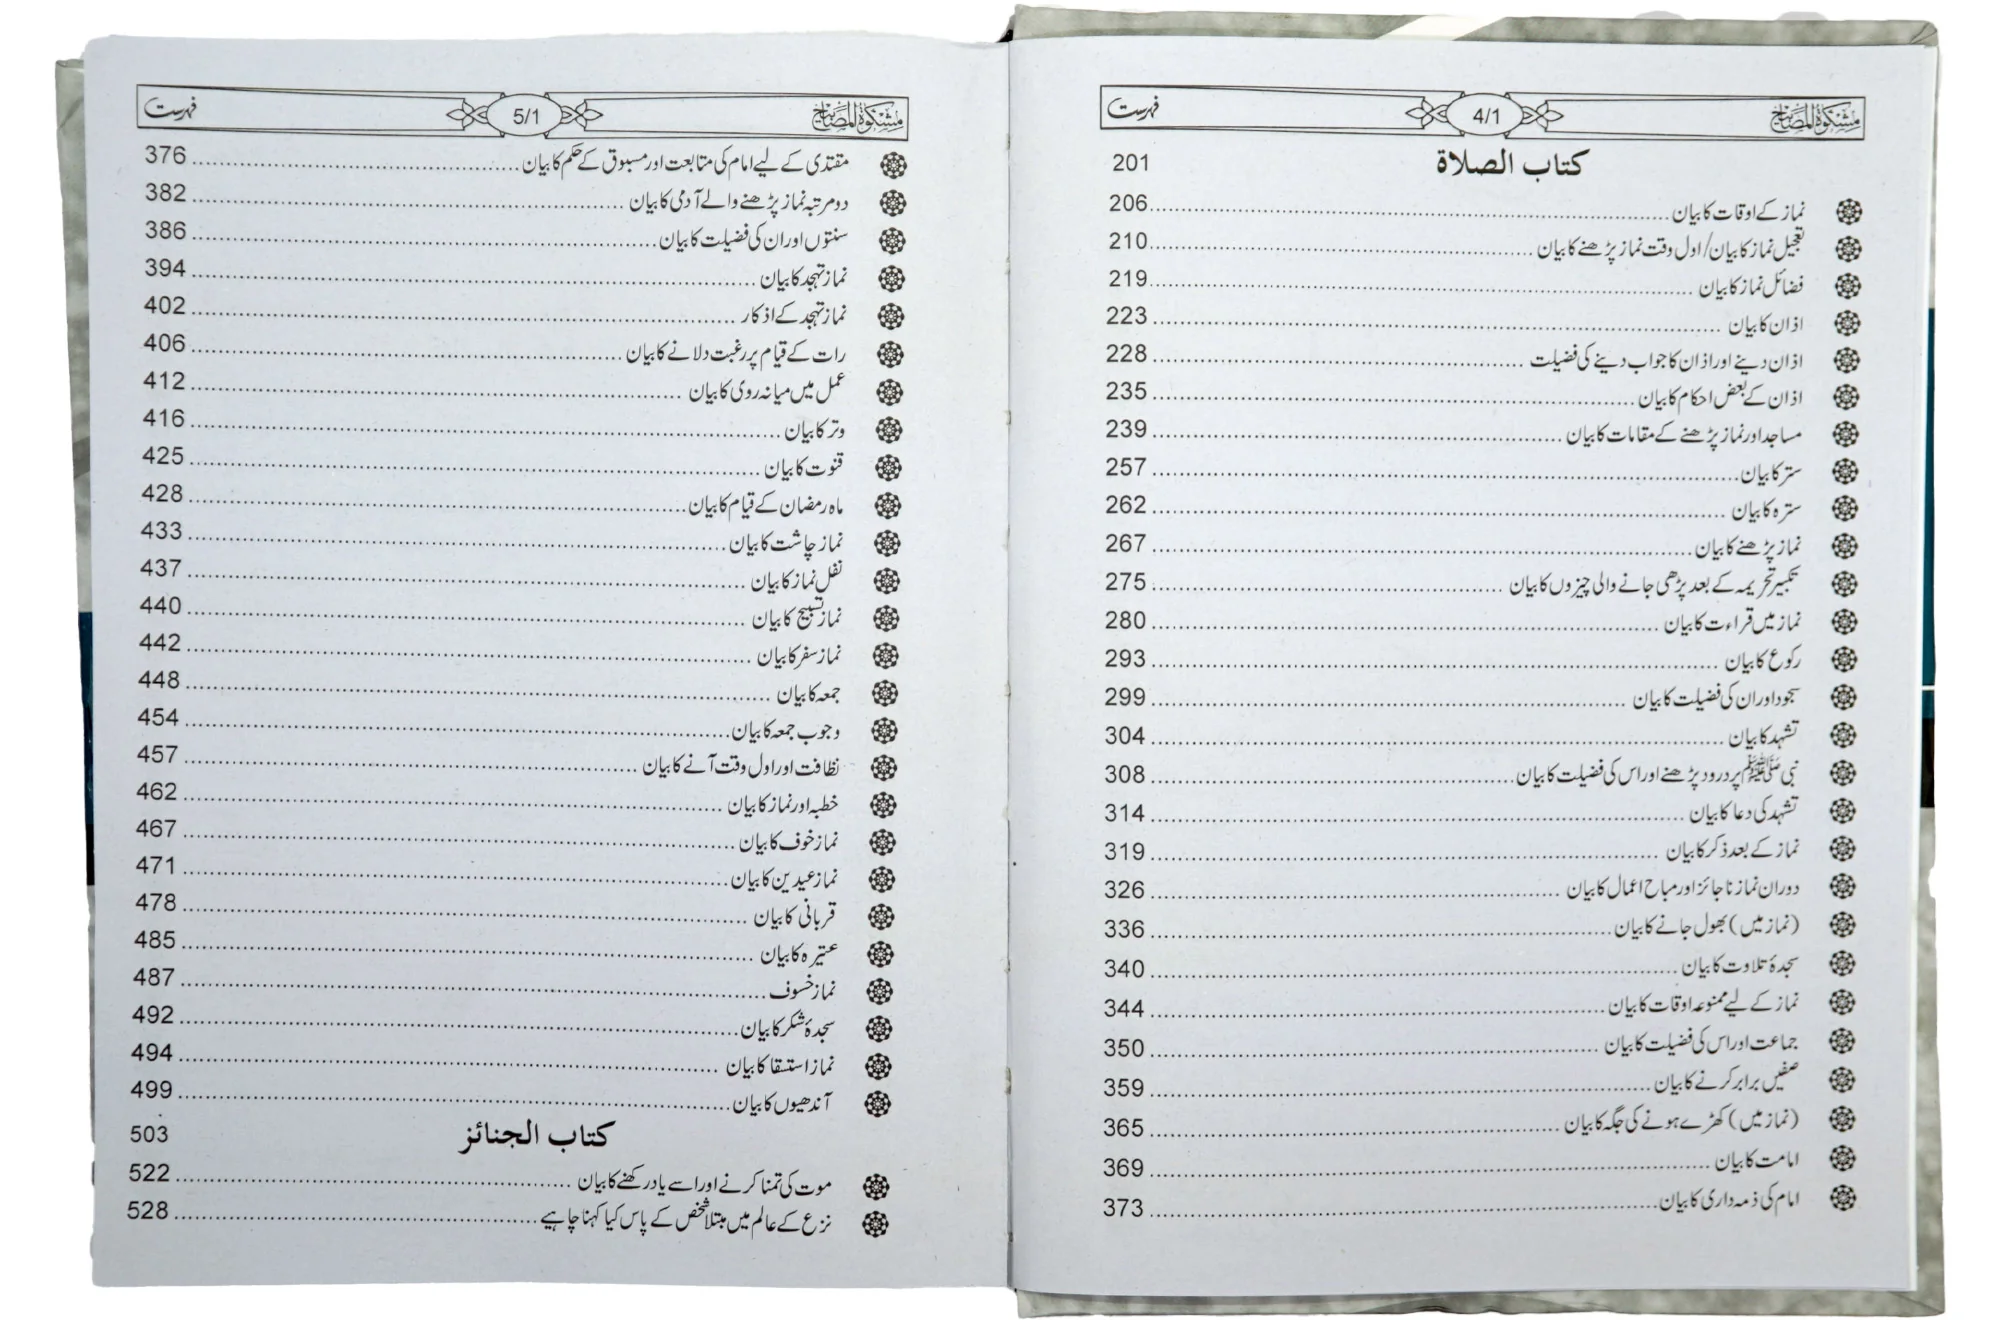 مشكوة المصابيح 4/1 فہرست
كتاب الصلاة 201
نماز کے اوقات کا بیان 206
تعجیل نماز کا بیان/اول وقت نماز پڑھنے کا بیان 210
فضائل نماز کا بیان 219
اذان کا بیان 223
اذان دینے اور اذان کا جواب دینے کی فضیلت 228
اذان کے بعض احکام کا بیان 235
مساجد اور نماز پڑھنے کے مقامات کا بیان 239
ستر کا بیان 257
سترہ کا بیان 262
نماز پڑھنے کا بیان 267
تکبیر تحریمہ کے بعد پڑھی جانے والی چیزوں کا بیان 275
نماز میں قراءت کا بیان 280
رکوع کا بیان 293
سجود اور ان کی فضیلت کا بیان 299
تشہد کا بیان 304
نبی ﷺ پر درود پڑھنے اور اس کی فضیلت کا بیان 308
تشہد کی دعا کا بیان 314
نماز کے بعد ذکر کا بیان 319
دوران نماز ناجائز اور مباح اعمال کا بیان 326
(نماز میں) بھول جانے کا بیان 336
سجدۂ تلاوت کا بیان 340
نماز کے لیے ممنوعہ اوقات کا بیان 344
جماعت اور اس کی فضیلت کا بیان 350
صفیں برابر کرنے کا بیان 359
(نماز میں) کھڑے ہونے کی جگہ کا بیان 365
امامت کا بیان 369
امام کی ذمہ داری کا بیان 373
مشكوة المصابيح 5/1 فہرست
مقتدی کے لیے امام کی متابعت اور مسبوق کے حکم کا بیان 376
دو مرتبہ نماز پڑھنے والے آدمی کا بیان 382
سنتوں اور ان کی فضیلت کا بیان 386
نماز تہجد کا بیان 394
نماز تہجد کے اذکار 402
رات کے قیام پر رغبت دلانے کا بیان 406
عمل میں میانہ روی کا بیان 412
وتر کا بیان 416
قنوت کا بیان 425
ماہ رمضان کے قیام کا بیان 428
نماز چاشت کا بیان 433
نفل نماز کا بیان 437
نماز تسبیح کا بیان 440
نماز سفر کا بیان 442
جمعہ کا بیان 448
وجوب جمعہ کا بیان 454
نظافت اور اول وقت آنے کا بیان 457
خطبہ اور نماز کا بیان 462
نماز خوف کا بیان 467
نماز عیدین کا بیان 471
قربانی کا بیان 478
عتیرہ کا بیان 485
نماز خسوف 487
سجدۂ شکر کا بیان 492
نماز استسقا کا بیان 494
آندھیوں کا بیان 499
كتاب الجنائز 503
موت کی تمنا کرنے اور اسے یاد رکھنے کا بیان 522
نزع کے عالم میں مبتلا شخص کے پاس کیا کہنا چاہیے 528